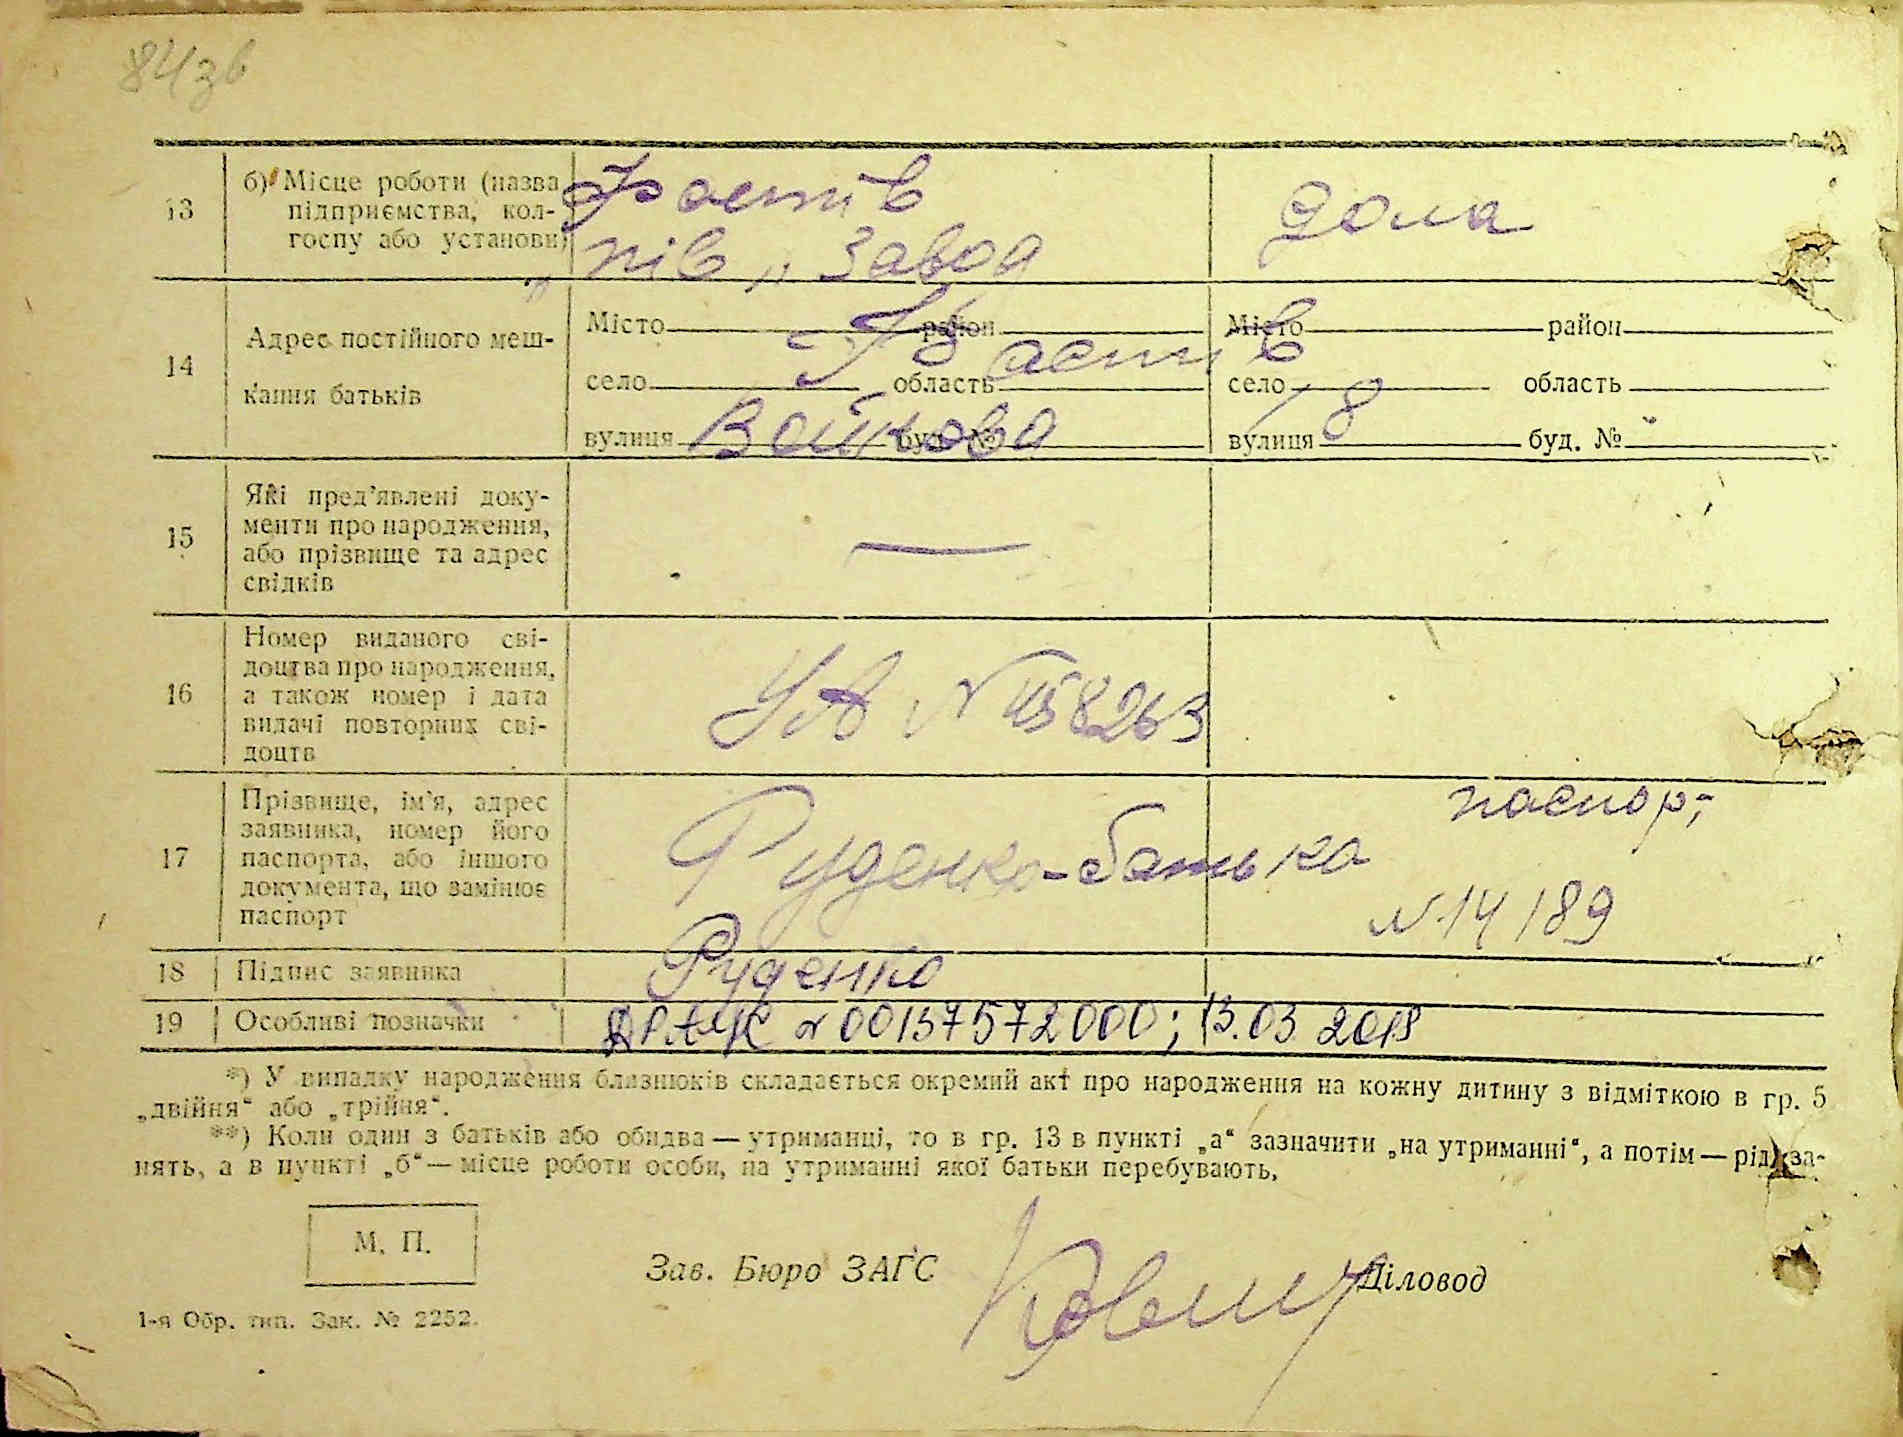 84зв
13 б) Місце роботи (назва підприємства, колгоспу або установи)
Фастів
„пів" завод
дома
14 Адрес постійного мешкання батьків
Місто район Місто район
Фастів
село область село область
вулиця буд. № вулиця буд. №
Войкова 18
15 Які пред'явлені документи про народження, або прізвище та адрес свідків
—
16 Номер виданого свідоцтва про народження, а також номер і дата видачі повторних свідоцтв
УА № 458263
17 Прізвище, ім'я, адрес заявника, номер його паспорта, або іншого документа, що замінює паспорт
Руденко-батька
паспор,
№ 14189
18 Підпис заявника
Руденко
19 Особливі позначки
ДРАЦС № 00137572000; 13.03 2018
*) У випадку народження близнюків складається окремий акт про народження на кожну дитину з відміткою в гр. 5
„двійня" або „трійня".
**) Коли один з батьків або обидва — утриманці, то в гр. 13 в пункті „а" зазначити „на утриманні", а потім — рід за-
нять, а в пункті „б" — місце роботи особи, на утриманні якої батьки перебувають.
М. П.
Зав. Бюро ЗАГС
Діловод
1-я Обр. тип. Зак. № 2252.